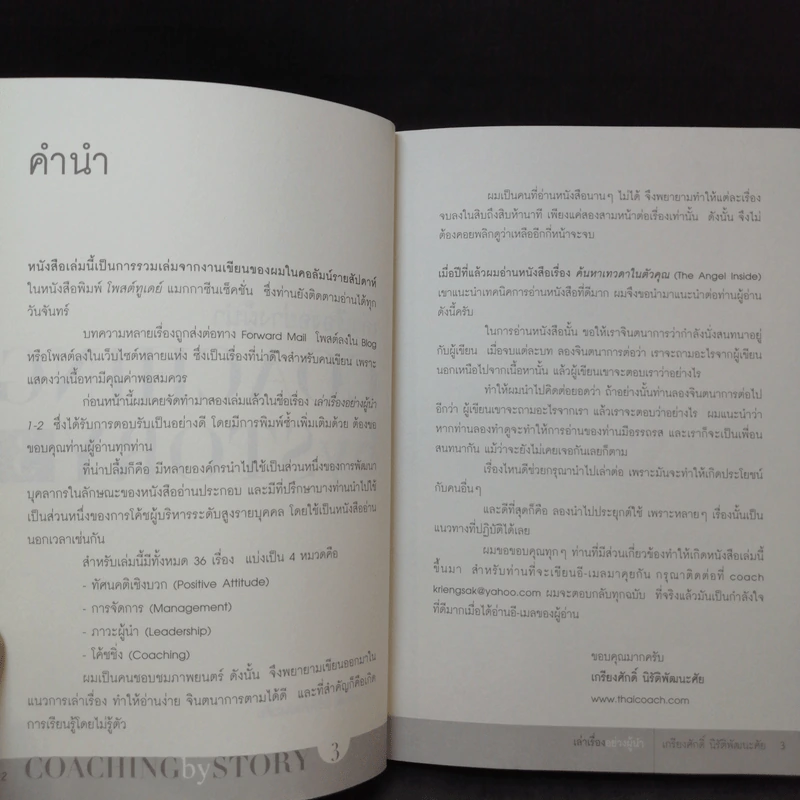 คำนำ
หนังสือเล่มนี้เป็นการรวมเล่มจากงานเขียนของผมในคอลัมน์รายสัปดาห์
ในหนังสือพิมพ์ โพสต์ทูเดย์ แมกกาซีนเซ็คชั่น ซึ่งท่านยังติดตามอ่านได้ทุก
วันจันทร์
บทความหลายเรื่องถูกส่งต่อทาง Forward Mail โพสต์ลงใน Blog
หรือโพสต์ลงในเว็บไซต์หลายแห่ง ซึ่งเป็นเรื่องที่น่าดีใจสำหรับคนเขียน เพราะ
แสดงว่าเนื้อหามีคุณค่าพอสมควร
ก่อนหน้านี้ผมเคยจัดทำมาสองเล่มแล้วในชื่อเรื่อง เล่าเรื่องอย่างผู้นำ
1-2 ซึ่งได้รับการตอบรับเป็นอย่างดี โดยมีการพิมพ์ซ้ำเพิ่มเติมด้วย ต้องขอ
ขอบคุณท่านผู้อ่านทุกท่าน
ที่น่าปลื้มก็คือ มีหลายองค์กรนำไปใช้เป็นส่วนหนึ่งของการพัฒนา
บุคลากรในลักษณะของหนังสืออ่านประกอบ และมีที่ปรึกษาบางท่านนำไปใช้
เป็นส่วนหนึ่งของการโค้ชผู้บริหารระดับสูงรายบุคคล โดยใช้เป็นหนังสืออ่าน
นอกเวลาเช่นกัน
สำหรับเล่มนี้มีทั้งหมด 36 เรื่อง แบ่งเป็น 4 หมวดคือ
- ทัศนคติเชิงบวก (Positive Attitude)
- การจัดการ (Management)
- ภาวะผู้นำ (Leadership)
- โค้ชชิ่ง (Coaching)
ผมเป็นคนชอบชมภาพยนตร์ ดังนั้น จึงพยายามเขียนออกมาใน
แนวการเล่าเรื่อง ทำให้อ่านง่าย จินตนาการตามได้ดี และที่สำคัญก็คือเกิด
การเรียนรู้โดยไม่รู้ตัว
2 COACHINGbySTORY 3
ผมเป็นคนที่อ่านหนังสือนานๆ ไม่ได้ จึงพยายามทำให้แต่ละเรื่อง
จบลงในสิบถึงสิบห้านาที เพียงแค่สองสามหน้าต่อเรื่องเท่านั้น ดังนั้น จึงไม่
ต้องคอยพลิกดูว่าเหลืออีกกี่หน้าจะจบ
เมื่อปีที่แล้วผมอ่านหนังสือเรื่อง ค้นหาเทวดาในตัวคุณ (The Angel Inside)
เขาแนะนำเทคนิคการอ่านหนังสือที่ดีมาก ผมจึงขอนำมาแนะนำต่อท่านผู้อ่าน
ดังนี้ครับ
ในการอ่านหนังสือนั้น ขอให้เราจินตนาการว่ากำลังนั่งสนทนาอยู่
กับผู้เขียน เมื่อจบแต่ละบท ลองจินตนาการต่อว่า เราจะถามอะไรจากผู้เขียน
นอกเหนือไปจากเนื้อหานั้น แล้วผู้เขียนเขาจะตอบเราว่าอย่างไร
ทำให้ผมนำไปคิดต่อยอดว่า ถ้าอย่างนั้นท่านลองจินตนาการต่อไป
อีกว่า ผู้เขียนเขาจะถามอะไรจากเรา แล้วเราจะตอบว่าอย่างไร ผมแนะนำว่า
หากท่านลองทำดูจะทำให้การอ่านของท่านมีอรรถรส และเราก็จะเป็นเพื่อน
สนทนากัน แม้ว่าจะยังไม่เคยเจอกันเลยก็ตาม
เรื่องไหนดีช่วยกรุณานำไปเล่าต่อ เพราะมันจะทำให้เกิดประโยชน์
กับคนอื่นๆ
และดีที่สุดก็คือ ลองนำไปประยุกต์ใช้ เพราะหลายๆ เรื่องนั้นเป็น
แนวทางที่ปฏิบัติได้เลย
ผมขอขอบคุณทุกๆ ท่านที่มีส่วนเกี่ยวข้องทำให้เกิดหนังสือเล่มนี้
ขึ้นมา สำหรับท่านที่จะเขียนอี-เมลมาคุยกัน กรุณาติดต่อที่ coach
kriengsak@yahoo.com ผมจะตอบกลับทุกฉบับ ที่จริงแล้วมันเป็นกำลังใจ
ที่ดีมากเมื่อได้อ่านอี-เมลของผู้อ่าน
ขอบคุณมากครับ
เกรียงศักดิ์ นิรัติพัฒนะศัย
www.thaicoach.com
เล่าเรื่องอย่างผู้นำ เกรียงศักดิ์ นิรัติพัฒนะศัย 3